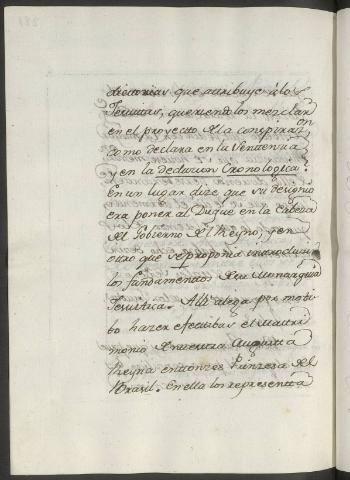 dictorias que atribuye à los
Jesuitas, queriendolos mezclar
en el proyecto de la conspiraz.on
como declara en la Sentencia
y en la deducion Cronologica.
En un lugar dize que su designio
era poner al Duque en la Cabeza
del Gobierno del Reyno, y en
otro que se proponia introducir
los fundamentos de su Monarquia
Jesuitica. Allì alega por moti-
bo hazer efectibas el Matri
monio de nuestra Augusta
Reyna entonzes Prinzesa del
Brasil. En ella los representa